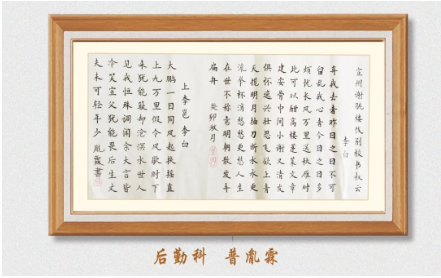 宣州谢朓楼饯别校书叔云
李白
弃我去者昨日之日不可
留乱我心者今日之日多
烦忧长风万里送秋雁对
此可以酣高楼蓬莱文章
建安骨中间小谢又清发
俱怀逸兴壮思飞欲上青
天揽明月抽刀断水水更
流举杯消愁愁更愁人生
在世不称意明朝散发弄
扁舟 癸卯秋月
上李邕 李白
大鹏一日同风起扶摇直
上九万里假令风歇时下
来犹能簸却沧溟水世人
见我恒殊调闻余大言皆
冷笑宣父犹能畏后生丈
夫未可轻年少 胤霖书
后勤科 普胤霖